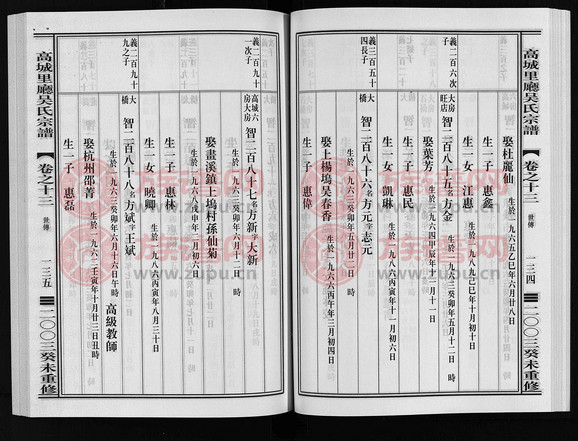 高城里廳吳氏宗譜
卷之十三
世傳
一三四
二〇〇三癸未重修
娶杜麗仙
生於一九六五乙巳年六月廿八日
生一子 惠鑫
生一女 江惠
生於一九八九己巳年十月初十日
義二百六次子
大房旺店
智二百八十五名方金
生於一九六三癸卯年五月十二日 時
娶葉芳
生於一九六四甲辰年十一月十一日
生一子 惠民
生一女 凱琳
生於一九八六丙寅年十一月初六日
義三百五十四長子
大橋
智二百八十六名方元字志元
娶上楊塢吳春香
生於一九六六丙午年三月初四日
生一子 惠偉
義二百九十一次子
高城六房大房
智二百八十七名方新字大新
生於一九六三癸卯年六月十二日 時
娶畫溪鎮上塢村孫仙菊
生於一九六八戊申年二月初六日
生一子 惠林
生一女 曉卿
生於一九八六丙寅年八月三十日
義二百九十九之子
大橋
智二百八十八名方斌字王斌
生於一九六三癸卯年六月十六日午時
高級教師
娶杭州邵菁
生於一九六二壬寅年十月廿三日丑時
生一子 惠磊
高城里廳吳氏宗譜
卷之十三
世傳
一三五
二〇〇三癸未重修